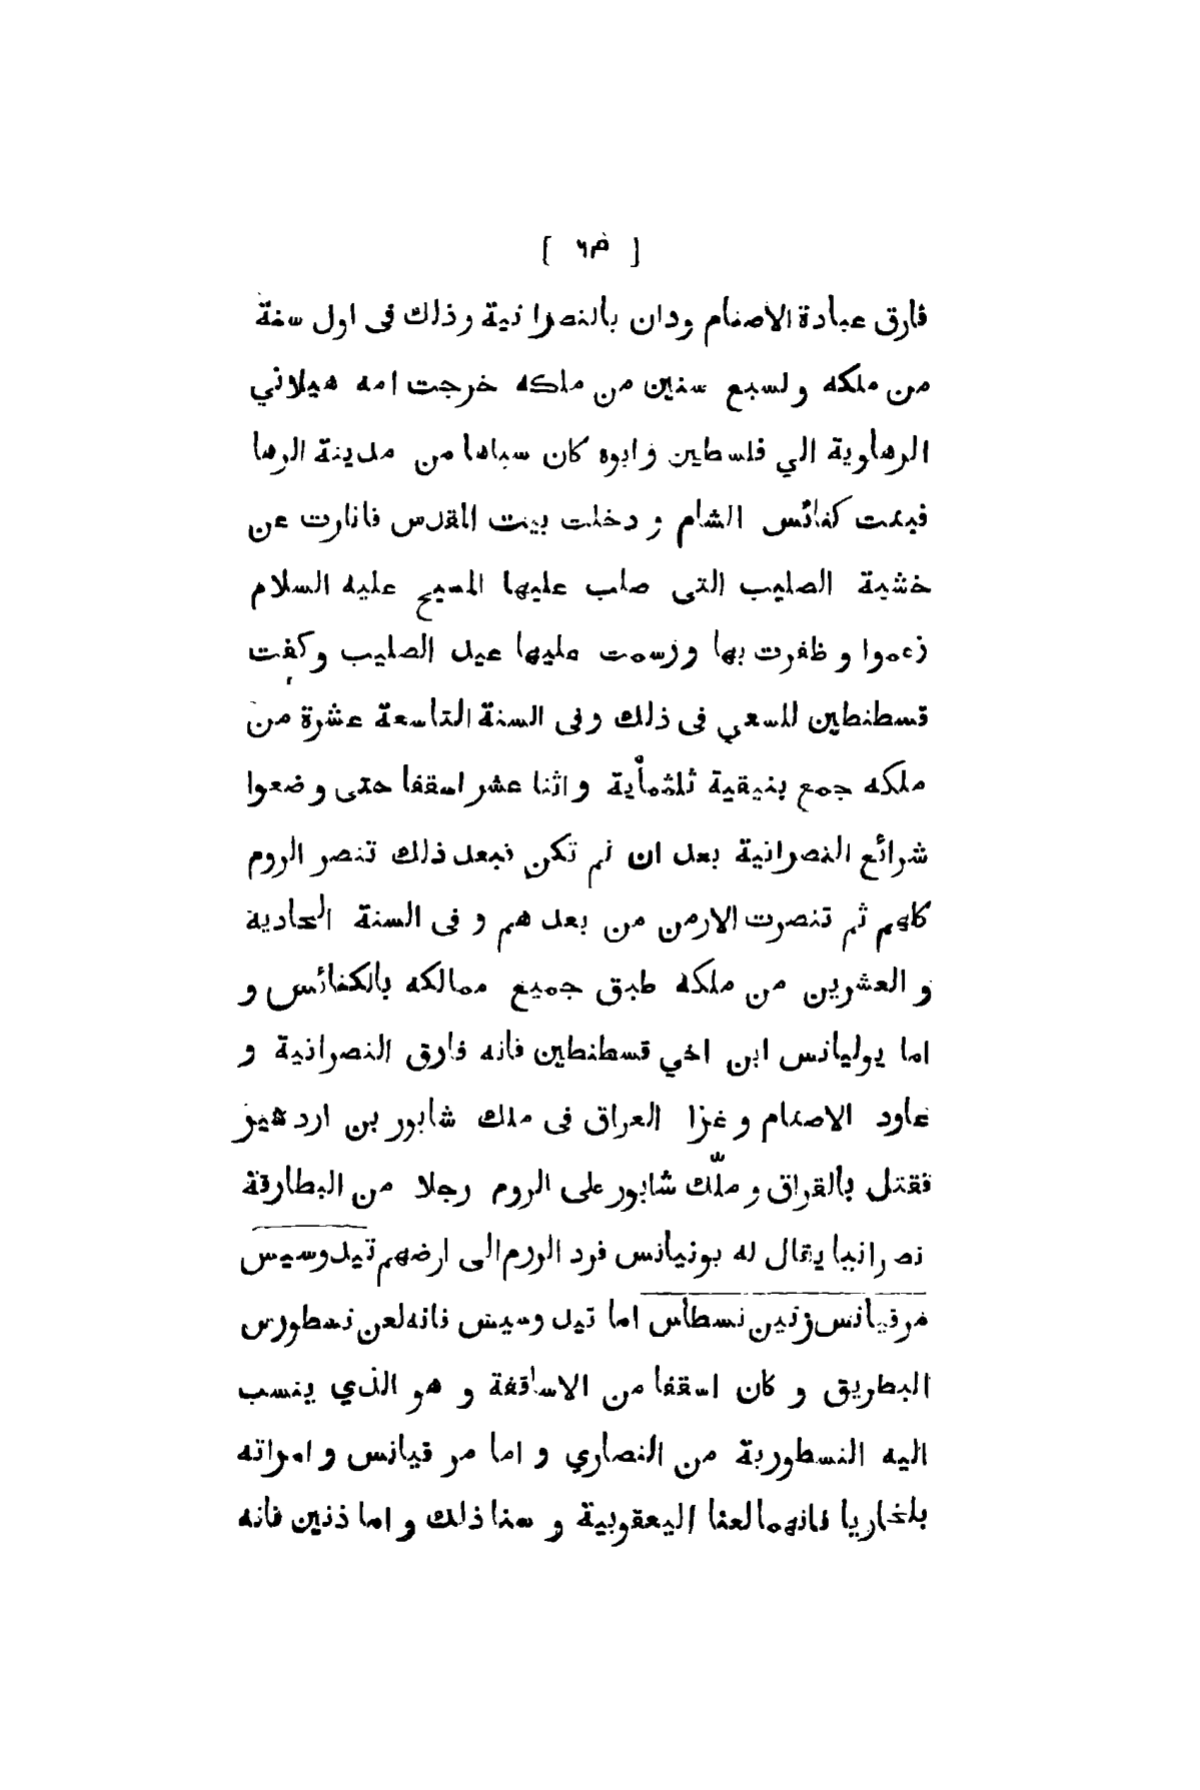 [ ٥٦ ]
فارق عبادة الاصنام ودان بالنصرانية وذلك فى اول سنة
من ملكه ولسبع سنين من ملكه خرجت امه هيلاني
الرهاوية الي فلسطين وابوه كان سباها من مدينة الرها
فبنت كنائس الشام و دخلت بيت المقدس فانارت عن
خشبة الصليب التى صلب عليها المسيح عليه السلام
زعموا و ظفرت بها ورسمت عليها عيد الصليب و
قسطنطين للسعي فى ذلك وفى السنة التاسعة عشرة من
ملكه جمع بنيقية ثلثمأية واثنا عشر اسقفا حتى وضعوا
شرائع النصرانية بعد ان لم تكن فبعد ذلك تنصر الروم
كلهم ثم تنصرت الارمن من بعد هم و فى السنة الحادية
و العشرين من ملكه طبق جميع ممالكه بالكنائس و
اما يوليانس ابن اخي قسطنطين فانه فارق النصرانية و
عاود الاصنام و غزا العراق فى ملك شابور بن اردشير
فقتل بالعراق و ملّك شابور على الروم رجلا من البطارقة
نصرانيا يقال له بونيانس فرد الروم الى ارضهم تيدوسيس
مرقيانس زنين نسطاس اما تيد وسيس فانه لعن نسطورس
البطريق و كان اسقفا من الاساقفة و هو الذي ينسب
اليه النسطورية من النصاري و اما مر قيانس و امراته
بلخاريا فانهما لعنا اليعقوبية و سنا ذلك و اما ذنين فانه